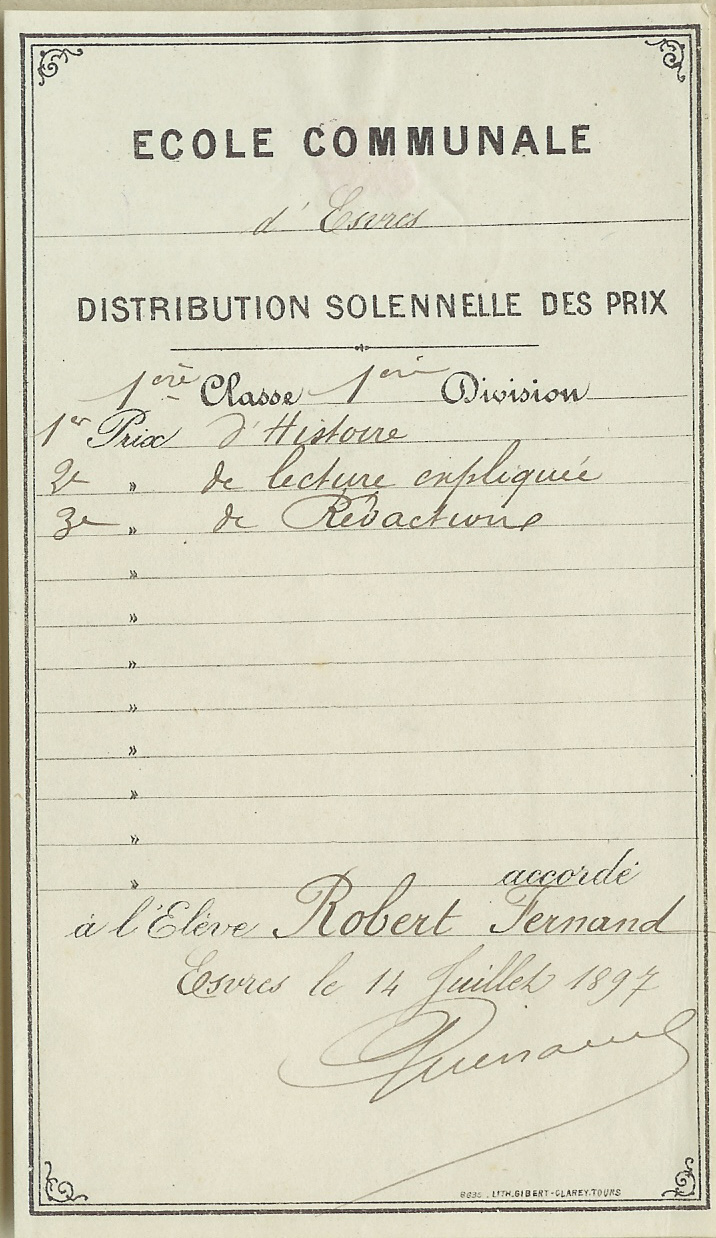 ECOLE COMMUNALE
d'Esvres
DISTRIBUTION SOLENNELLE DES PRIX
1ère Classe 1ère Division
1er Prix d'Histoire
2e » de lecture expliquée
3e » de Rédaction
»
»
»
»
»
»
»
» accordé
à l'Elève Robert Fernand
Esvres le 14 Juillet 1897
LITH. GIBERT-CLAREY. TOURS